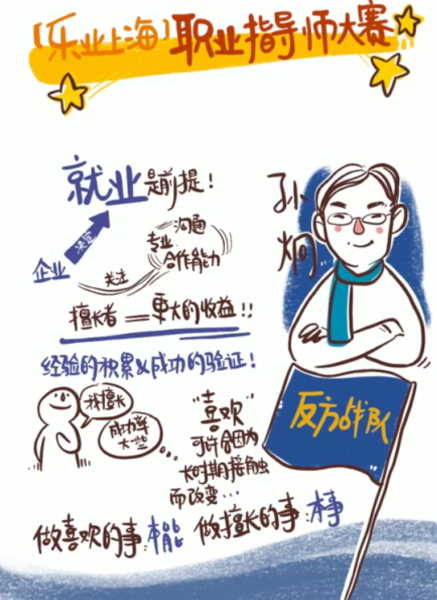 【乐业上海】职业指导师大赛
就业是前提！
决定
企业
沟通
专业
合作能力
关注
擅长者＝更大的收益!!
经验的积累&成功的验证！
我擅长
成功率
大些
...
"喜欢"
可能会因为
长时期接触
而改变...
做喜欢的事:本能
做擅长的事:本事
孙
炯
反方战队